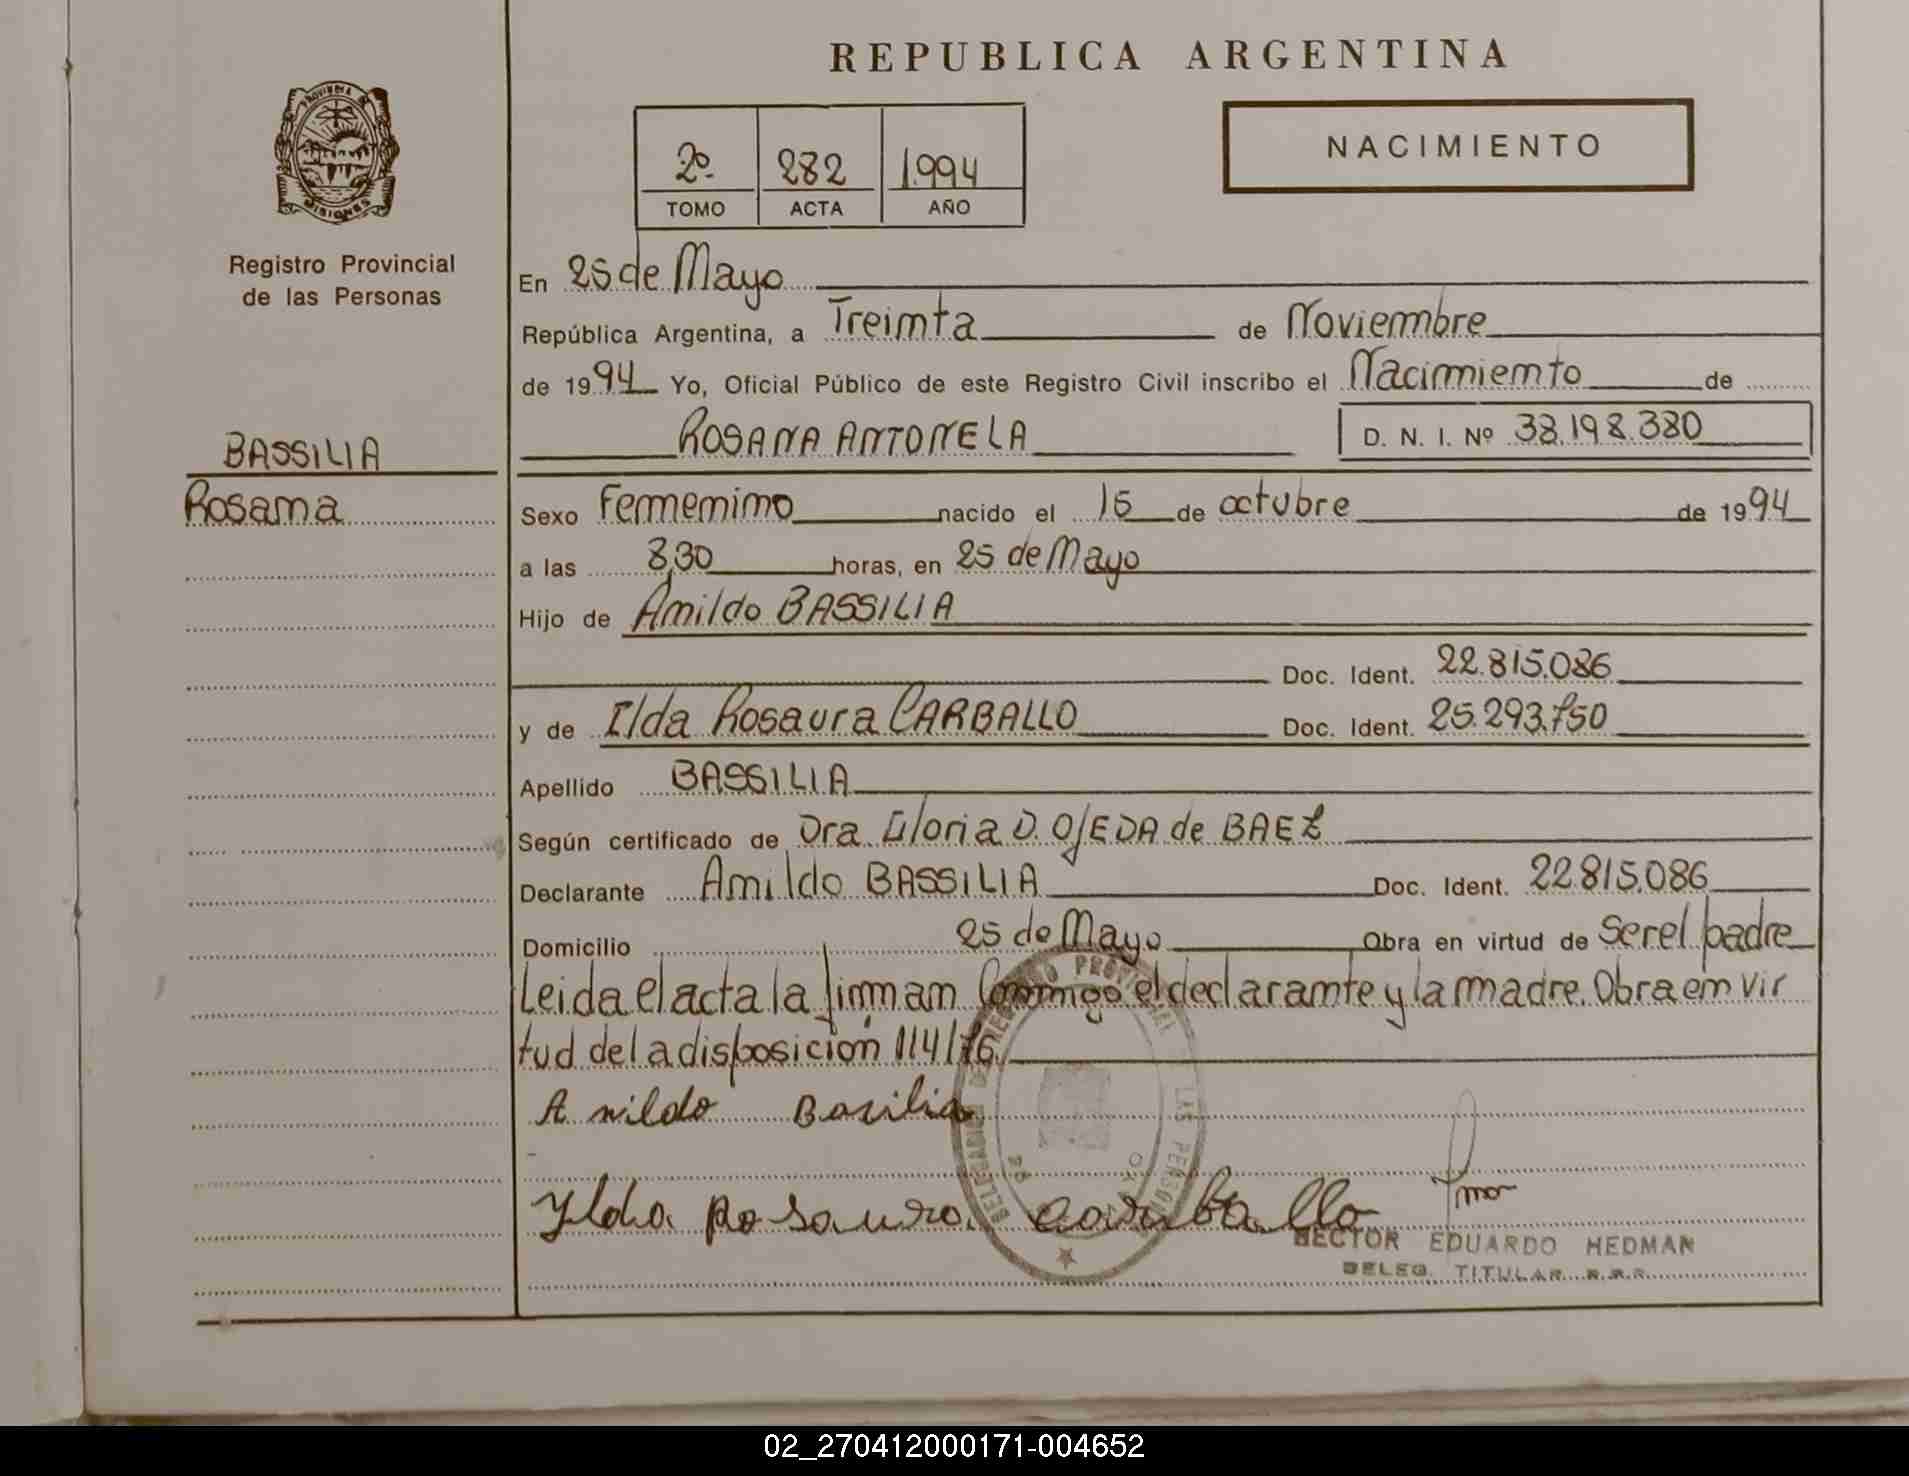 REPUBLICA ARGENTINA
PROVINCIA DE
MISIONES
Registro Provincial
de las Personas
2º 282 1994
TOMO ACTA AÑO
NACIMIENTO
En 25 de Mayo
República Argentina, a Treinta de Noviembre
de 1994 Yo, Oficial Público de este Registro Civil inscribo el Nacimiento de
ROSANA ANTONELA D. N. I. Nº 38.198.380
BASSILIA
Rosana
Sexo Femenino nacido el 15 de octubre de 1994
a las 8,30 horas, en 25 de Mayo
Hijo de Anildo BASSILIA
Doc. Ident. 22.815.086
y de Ilda Rosaura CARBALLO Doc. Ident. 25.293.750
Apellido BASSILIA
Según certificado de Dra Gloria D. OJEDA de BAEZ
Declarante Anildo BASSILIA Doc. Ident. 22.815.086
Domicilio 25 de Mayo Obra en virtud de Ser el padre
Leida el acta la firman Conmigo el declarante y la madre. Obra en vir
tud de la disposición 114/76.
Anildo Basilia
Ylda Rosaura Carballo
HECTOR EDUARDO HEDMAN
DELEG. TITULAR R.P.P.
02_270412000171-004652